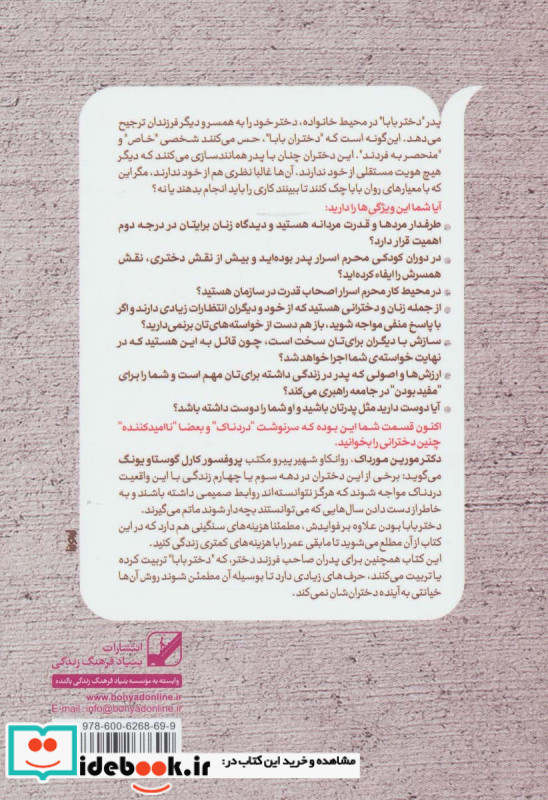 پدر "دختر بابا" در محیط خانواده، دختر خود را به همسر و دیگر فرزندان ترجیح
می‌دهد. این‌گونه است که "دختران بابا"، حس می‌کنند شخصی "خاص" و
"منحصر به فردند". این دختران چنان با پدر همانندسازی می‌کنند که دیگر
هیچ هویت مستقلی از خود ندارند. آن‌ها غالبا نظری هم از خود ندارند، مگر این
که با معیارهای روان بابا چک کنند تا ببینند کاری را باید انجام بدهند یا نه؟
آیا شما این ویژگی‌ها را دارید:
طرفدار مردها و قدرت مردانه هستید و دیدگاه زنان برایتان در درجه دوم
اهمیت قرار دارد؟
در دوران کودکی محرم اسرار پدر بوده‌اید و بیش از نقش دختری، نقش
همسرش را ایفاء کرده‌اید؟
در محیط کار محرم اسرار اصحاب قدرت در سازمان هستید؟
از جمله زنان و دخترانی هستید که از خود و دیگران انتظارات زیادی دارند و اگر
با پاسخ منفی مواجه شوید، باز هم دست از خواسته‌های‌تان برنمی‌دارید؟
سازش با دیگران برای‌تان سخت است، چون قائل به این هستید که در
نهایت خواسته‌ی شما اجرا خواهد شد؟
ارزش‌ها و اصولی که پدر در زندگی داشته برای‌تان مهم است و شما را برای
"مفید بودن" در جامعه راهبری می‌کند؟
آیا دوست دارید مثل پدرتان باشید و او شما را دوست داشته باشد؟
اکنون قسمت شما این بوده که سرنوشت "دردناک" و بعضا "ناامیدکننده"
چنین دخترانی را بخوانید.
دکتر مورین مورداک، روانکاو شهیر پیرو مکتب پروفسور کارل گوستاو یونگ
می‌گوید: برخی از این دختران در دهه سوم یا چهارم زندگی با این واقعیت
دردناک مواجه شوند که هرگز نتوانسته‌اند روابط صمیمی داشته باشند و به
خاطر از دست دادن سال‌هایی که می‌توانستند بچه‌دار شوند ماتم می‌گیرند.
دختر بابا بودن علاوه بر فوایدش، مطمئنا هزینه‌های سنگینی هم دارد که در این
کتاب از آن مطلع می‌شوید تا مابقی عمر را با هزینه‌های کمتری زندگی کنید.
این کتاب همچنین برای پدران صاحب فرزند دختر، که "دختر بابا" تربیت کرده
یا تربیت می‌کنند، حرف‌های زیادی دارد تا بوسیله آن مطمئن شوند روش آن‌ها
خیانتی به آینده دختران‌شان نمی‌کند.
انتشارات
بنیاد فرهنگ زندگی
وابسته به موسسه بنیاد فرهنگ زندگی بالنده
www.bonyadonline.ir
E-mail: info@bonyadonline.ir
978-600-6268-69-9
مشاهده و خرید این کتاب در:
idebook.ir